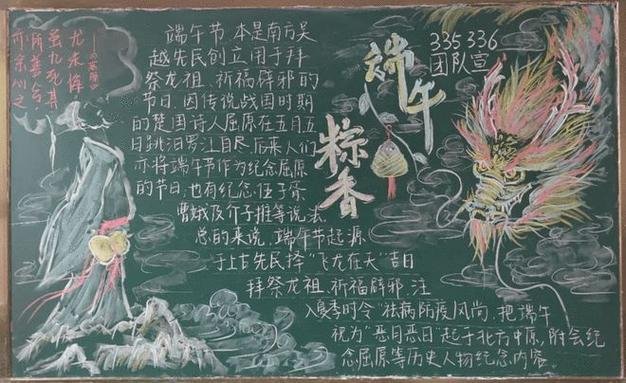 亦余心之
所善兮
虽九死其
尤未悔
——《离骚》
端午节,本是南方吴
越先民创立用于拜
祭龙祖、祈福辟邪的
节日。因传说战国时期
的楚国诗人屈原在五月五
日跳汨罗江自尽,后来人们
亦将端午节作为纪念屈原
的节日;也有纪念伍子胥
曹娥及介子推等说法。
总的来说,端午节起源
于上古先民择“飞龙在天”吉日
拜祭龙祖、祈福辟邪,注
入夏季时令“祛病防疫”风尚;把端午
视为“恶月恶日”起于北方中原,附会纪
念屈原等历史人物纪念内容。
端午
粽香
335 336
团队宣